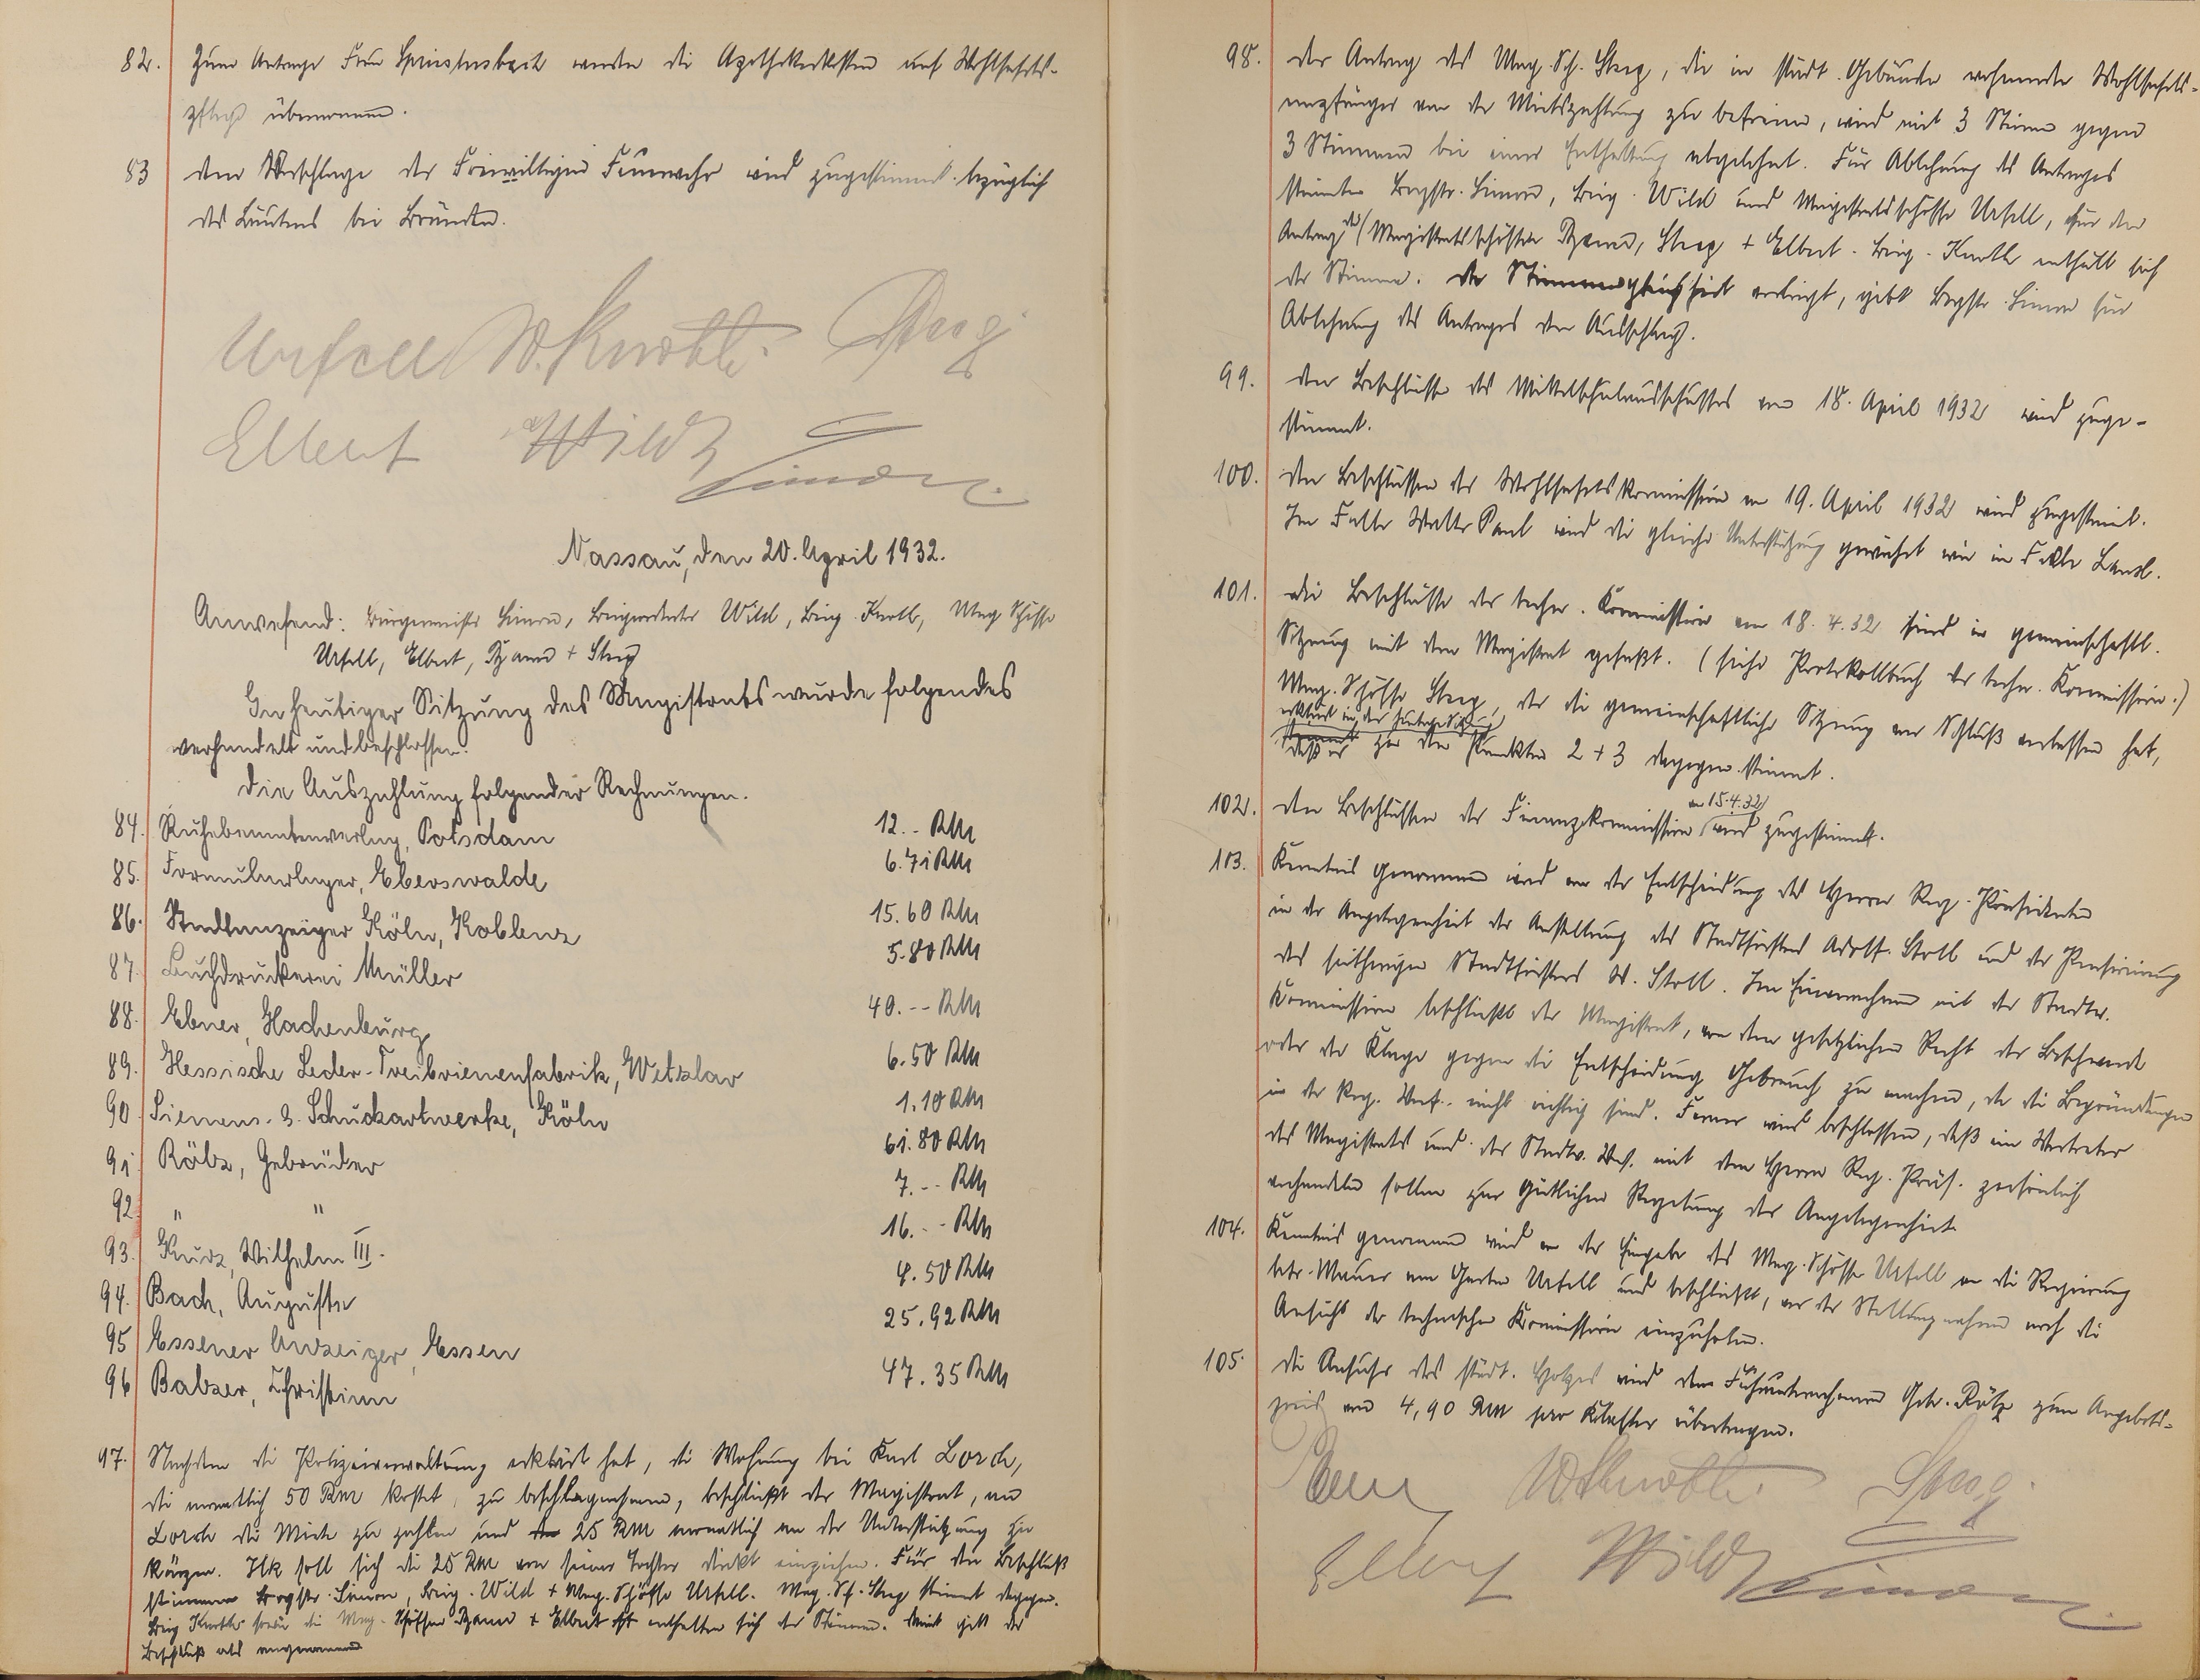 82. Zum Antrage Frau Spriestersbach werden die Apothekerkosten auf Wohlfahrts-
pflege übernommen.
83 Dem Vorschlage der Freiwilligen Feuerwehr wird zugestimmt bezüglich
des Läutens bei Bränden.
Urfell W. Knoth. Steeg
Elbert Wild Simon
Nassau, den 20. April 1932.
Anwesend: Bürgermeister Simon, Beigeordneter Wild, Beig. Knoth, Mag. Schöffe
Urfell, Elbert, + Steeg
In heutiger Sitzung des Magistrats wurde folgendes
verhandelt und beschlossen:
Die Auszahlung folgender Rechnungen.
84. Ruhebeamtenverlag, Potsdam 12.- RM
85. Formularlager, Eberswalde 6.71 RM
86. Stadtanzeiger Köln, Koblenz 15.60 RM
87. Buchdruckerei Müller 5.80 RM
88. Ebner, Hachenburg 40.-- RM
89. Hessische Leder-Treibriemenfabrik, Wetzlar 6.50 RM
90. Siemens. & Schuckartwerke, Köln 1.10 RM
91. Rötz, Gebrüder 61.80 RM
92. " " 7.-- RM
93. Kurz, Wilhelm III. 16.-- RM
94. Bach, Auguste 4.50 RM
95 Essener Anzeiger, Essen 25.92 RM
96 Balzer, Christian 47.35 RM
97. Nachdem die Polizeiverwaltung erklärt hat, die Wohnung bei Karl Lorch,
die monatlich 50 RM kostet, zu beschlagnahmen, beschließt der Magistrat, an
Lorch die Miete zu zahlen und 25 RM monatlich an der Unterstützung zu
kürzen. Ilk soll sich die 25 RM von seiner Tochter direkt einziehen. Für den Beschluß
stimmen Brgstr. Simon, Beig. Wild + Mag. Schöffe Urfell. Mag. Sch. Steeg stimmt dagegen.
Beig Knoth sowie die Mag. Schöffen + Elbert enthalten sich der Stimme. Somit gilt der
Beschluß als angenommen
98. Der Antrag des Mag. Sch. Steeg, die in städt. Gebäude wohnende Wohlfahrts-
empfänger von der Mietszahlung zu befreien, wird mit 3 Stimmen gegen
3 Stimmen bei einer Enthaltung abgelehnt. Für Ablehnung des Antrages
stimmten Brgstr. Simon, Beig. Wild und Magistratsschöffe Urfell, für den
Antrag die Magistratsschöffen Steeg + Elbert. Beig. Knoth enthält sich
der Stimme. Da Stimmengleichheit vorliegt, gibt Brgstr. Simon für
Ablehnung des Antrages den Ausschlag.
99. Den Beschlüsse des Mittelschulausschusses vom 18. April 1932 wird zuge-
stimmt.
100. Den Beschlüssen der Wohlfahrtskommission vom 19. April 1932 wird zugestimmt.
Im Falle Walter Paul wird die gleiche Unterstützung gewährt wie im Falle
101. Die Beschlüsse der techn. Kommission vom 18.4.32 sind in gemeinschaftl.
Sitzung mit dem Magistrat gefaßt. (siehe Protokollbuch der techn. Kommission.)
Mag. Schöffe Steeg, der die gemeinschaftliche Sitzung vor Schluß verlassen hat,
erklärt in der heutigen Sitzung
daß er zu den Punkten 2 + 3 dagegen stimmt.
102. Den Beschlüssen der Finanzkommission vom 15.4.32 wird zugestimmt.
103. Kenntnis genommen wird von der Entscheidung des Herrn Reg.-Präsidenten
in der Angelegenheit der Anstellung des Stadtförsters Adolf Stoll und der Pensionierung
des seitherigen Stadtförsters W. Stoll. Im Einvernehmen mit der Stadtv.
Kommission beschließt der Magistrat, von dem gesetzlichen Recht der Beschwerde
oder der Klage gegen die Entscheidung Gebrauch zu machen, da die Begründungen
in der Reg. Verf. nicht richtig sind. Ferner wird beschlossen, daß ein Vertreter
des Magistrats und der Stadtv. Vers. mit dem Herrn Reg. Präs. persönlich
verhandeln sollen zur gütlichen Regelung der Angelegenheit.
104. Kenntnis genommen wird von der Eingabe des Mag. Schöffe Urfell an die Regierung
betr. Mauer am Garten Urfell und beschließt, vor der Stellungnahme noch die
Ansicht der technischen Kommission einzuholen.
105. Die Anfuhr des städt. Holzes wird dem Fuhrunternehmen Gebr. Rötz zum Angebots-
preis von 4,90 RM pro Klafter übertragen.
W. Knoth. Steeg.
Elbert Wild Simon